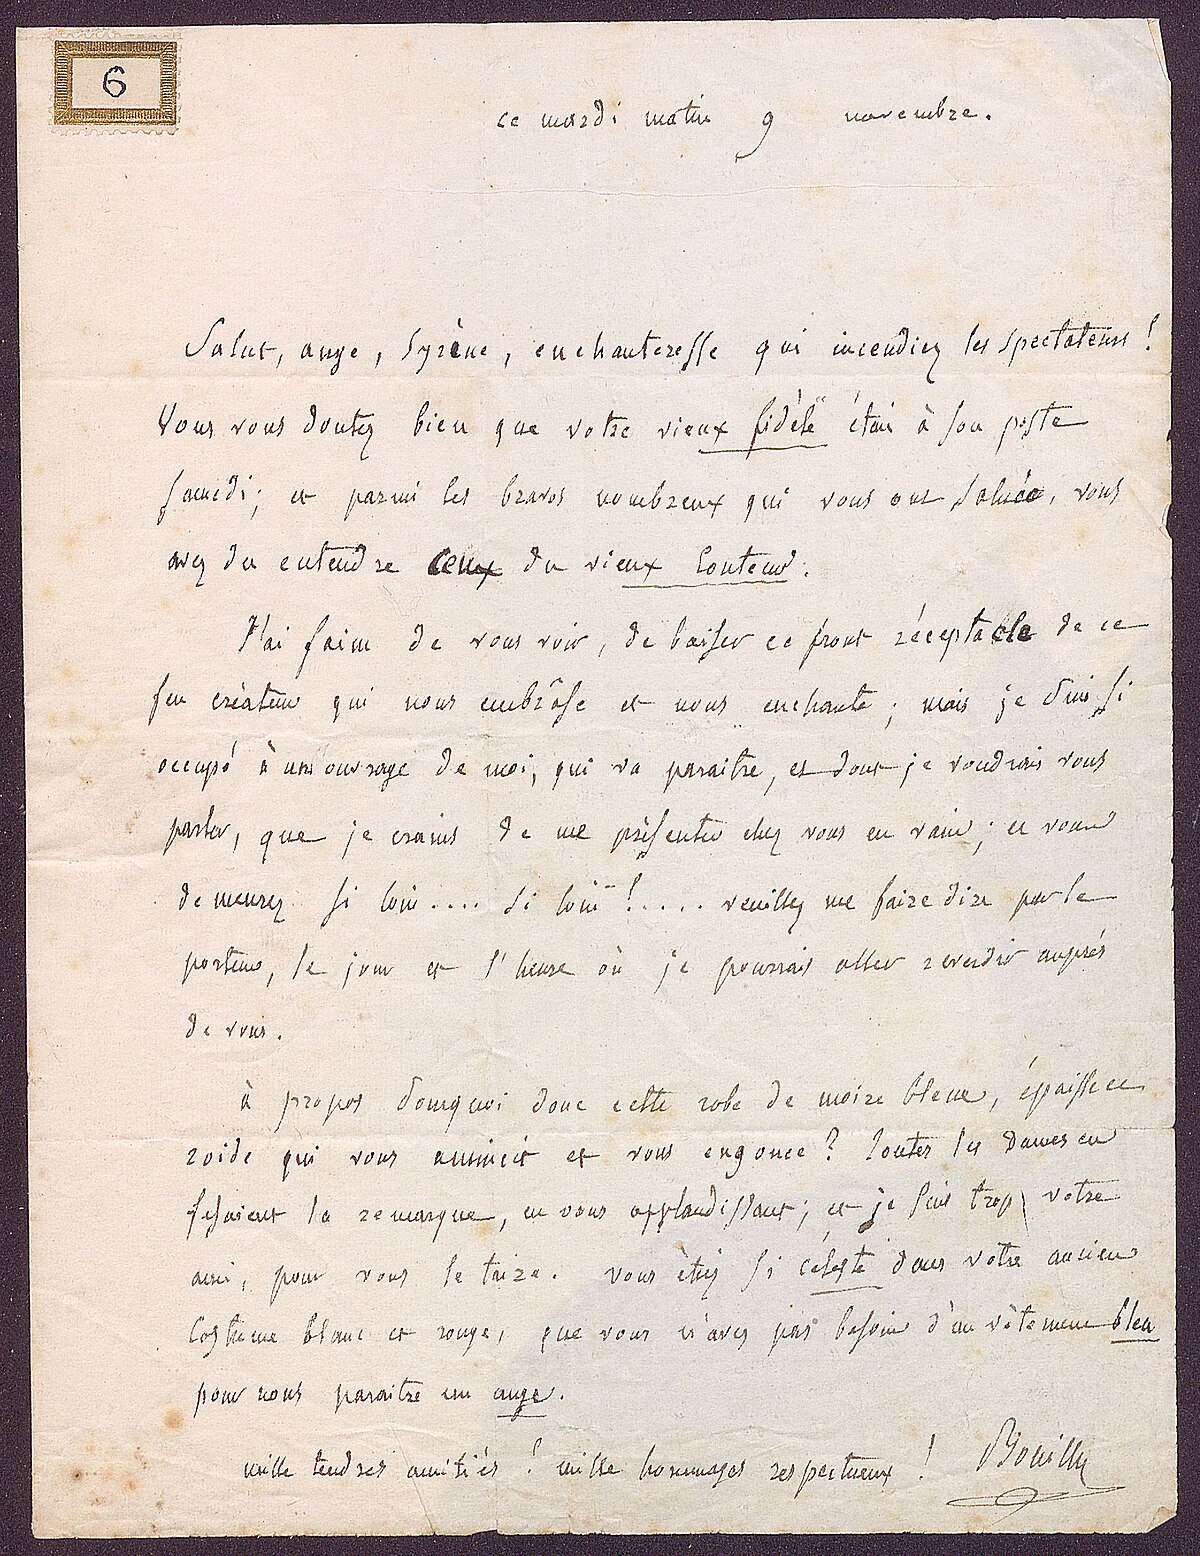 6
ce mardi matin 9 novembre.
Salut, ange, syrène, enchanteresse qui incendiez les spectateurs !
Vous vous doutez bien que votre vieux fidèle était à son poste
samedi ; et parmi les bravos nombreux qui vous ont saluée, vous
avez du entendre ceux du vieux Conteur.
J'ai faim de vous voir, de baiser ce front réceptacle de ce
feu créateur qui nous embrâse et nous enchante ; mais je suis si
occupé à un ouvrage de moi, qui va paraitre, et dont je voudrais vous
parler, que je crains de me présenter chez vous en vain ; et vous
demeurez si loin .... si loin ! .... veuillez me faire dire par le
porteur, le jour et l'heure où je pourrais aller reverdir auprés
de vous.
à propos pourquoi donc cette robe de moire bleue, épaisse et
roide qui vous amincit et vous engonce ? Toutes les dames en
fesaient la remarque, en vous applaudissant ; et je suis trop votre
ami, pour vous le taire. Vous étiez si céleste dans votre ancien
costume blanc et rouge, que vous n'avez pas besoin d'un vêtement bleu
pour nous paraitre un ange.
mille tendres amitiés ! mille hommages respectueux ! Bouilly